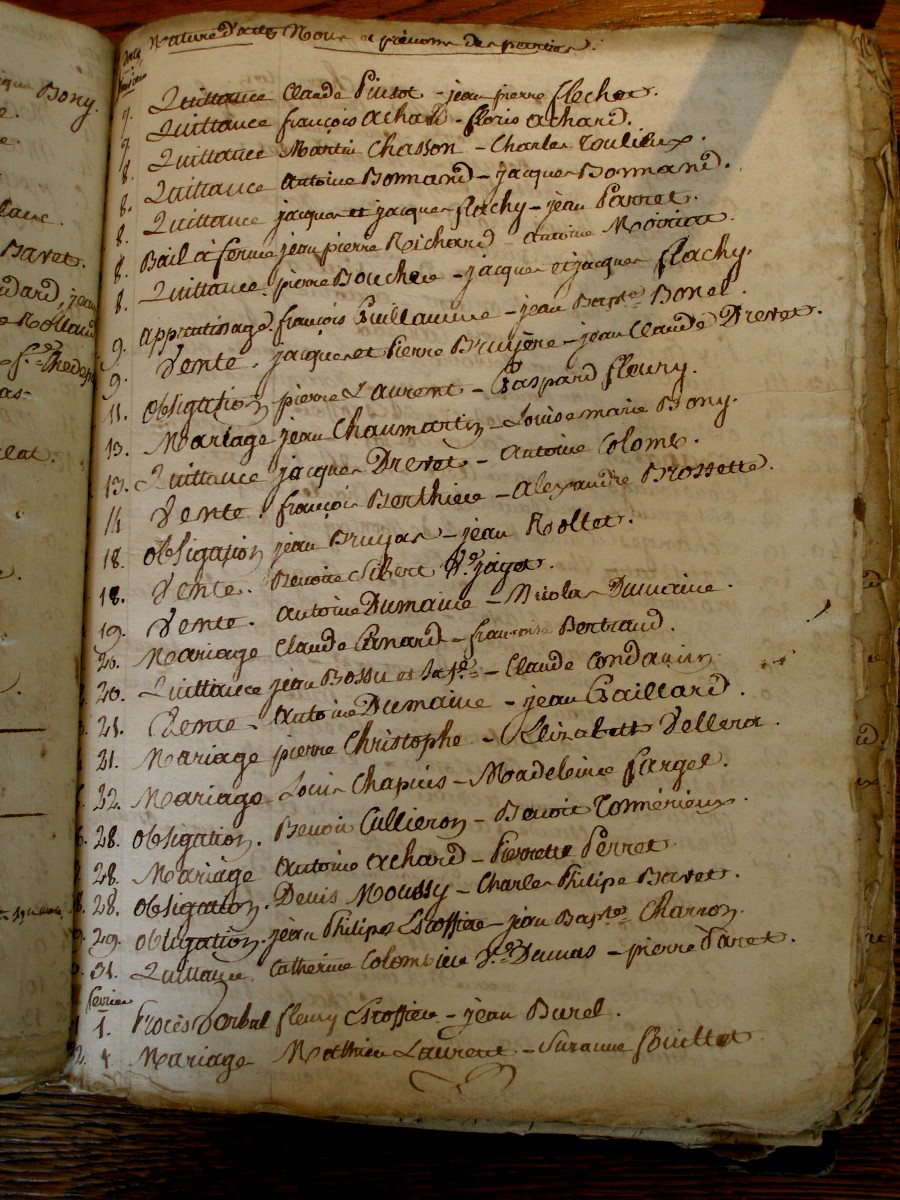 Bony.
Bavet.
Nature d'actes Noms et prénoms des parties.
7. Quittance Claude Pinsot - jean pierre flechet.
7. Quittance françois achard - floris achard.
8. Quittance Martin Chasson - Charles Toulieux.
8. Quittance Antoine Bonnand - jacques Bonnand.
8. Quittance jacques et jacques flachy - jean Parret.
8. Bail à ferme jean pierre Richard - antoine
8. Quittance. pierre Bouchere - jacques et jacques flachy.
9. apprentissage françois Guillaume - jean Bapte Bonel.
9. Vente. jacques et Pierre Bruyere - jean Claude Drevet.
11. obligation pierre Laurent - Gaspard fleury.
13. Mariage jean Chaumartin - Louise marie Bony.
13. Quittance jacques Drevet - antoine Colomb.
14 Vente. françois Berthier - alexandre Brossette.
18. obligation jean Bruyas - jean Rollet.
18. Vente. Benoite Sibert Ve jagot.
19. Vente. antoine Dumaine - Nicolas Dumaine.
20. Mariage Claude - françoise Bertraud.
20. Quittance jean Bossu et sa fe - Claude Condamin
21. Vente - antoine Dumaine - jean Gaillard.
21. Mariage pierre Christophe - Elizabett Vellerat.
22. Mariage Louis Chapuis - Madeleine farget.
28. obligation. Benoit Cullieron - Benoit
28. Mariage antoine achard - Pierrette Perret
28. obligation. Denis Moussy - Charles Philipe Bavet.
29. obligation. jean Philipes Escoffier - jean Bapte Charron.
31. Quittance Catherine Colombier Ve Dumas - pierre
février
1. Procès Verbal fleury Escoffier - jean Burel.
4 Mariage Mathieu Laurent - Suzanne fouillet